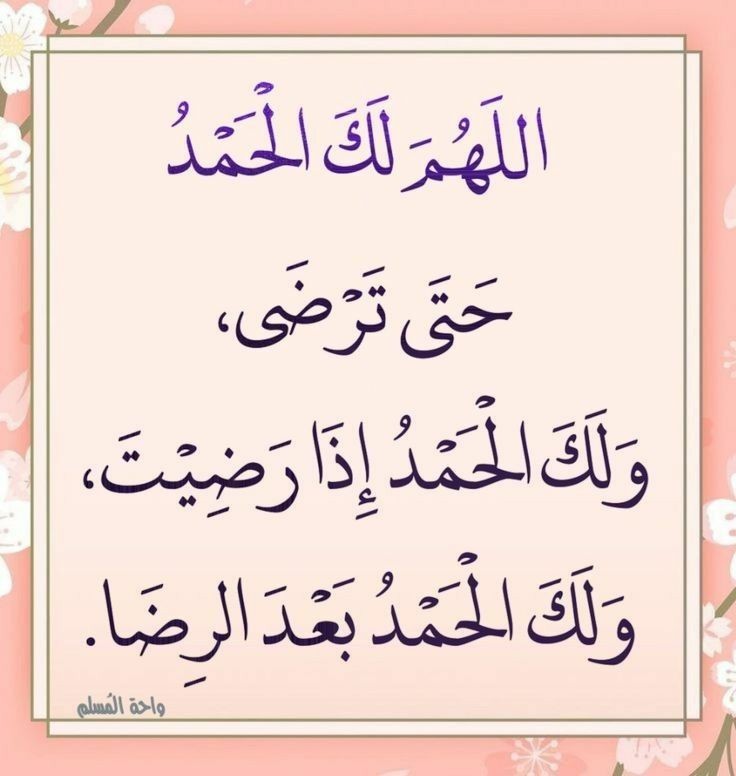 اللَهُمَ لَكَ الْحَمْدُ
حَتَى تَرْضَى،
وَلَكَ الْحَمْدُ إِذَا رَضِيْتَ،
وَلَكَ الْحَمْدُ بَعْدَ الرِضَا.
واحة المُسلم